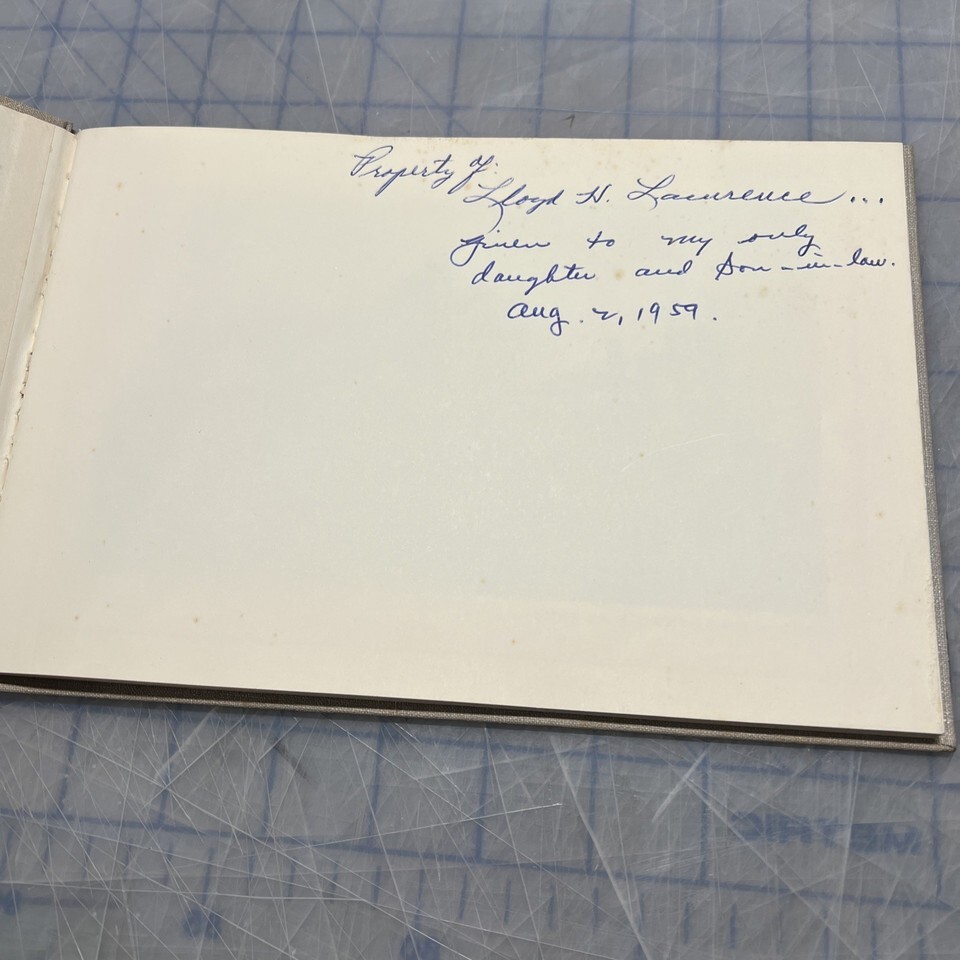 Property of:
Lloyd H. Lawrence ...
given to my only
daughter and son-in-law.
Aug. 2, 1959.